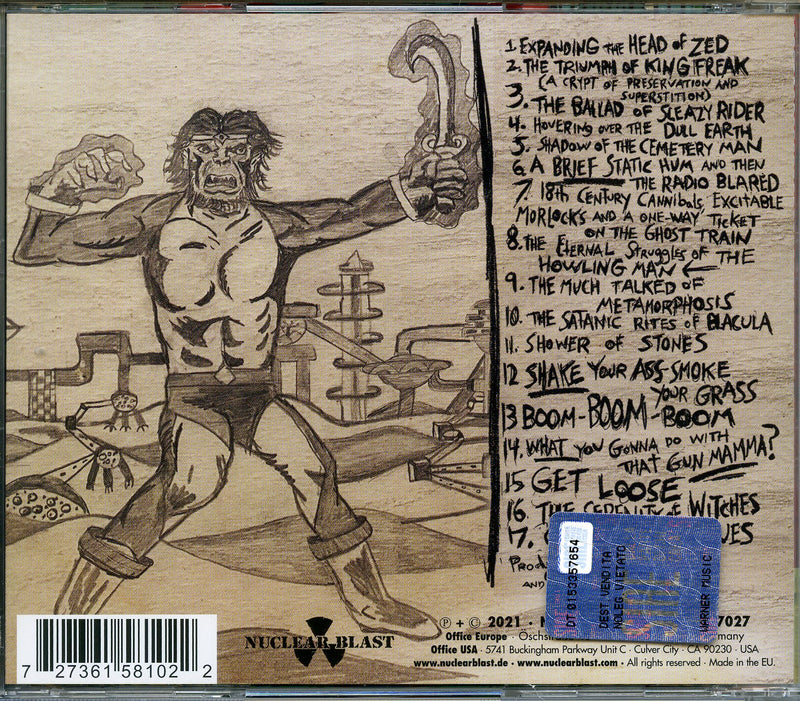 1. EXPANDING THE HEAD OF ZED
2. THE TRIUMPH OF KING FREAK
(A CRYPT OF PRESERVATION AND
SUPERSTITION)
3. THE BALLAD OF SLEAZY RIDER
4. HOVERING OVER THE DULL EARTH
5. SHADOW OF THE CEMETERY MAN
6. A BRIEF STATIC HUM AND THEN
THE RADIO BLARED
7. 18th CENTURY CANNIBALS, EXCITABLE
MORLOCKS AND A ONE-WAY TICKET
ON THE GHOST TRAIN
8. THE ETERNAL STRUGGLES OF THE
HOWLING MAN
9. THE MUCH TALKED OF
METAMORPHOSIS
10. THE SATANIC RITES OF BLACULA
11. SHOWER OF STONES
12 SHAKE YOUR ASS-SMOKE
YOUR GRASS
13 BOOM-BOOM-BOOM
14. WHAT YOU GONNA DO WITH
THAT GUN MAMMA?
15 GET LOOSE
16. THE SERENITY OF WITCHES
17.
AND
DT 0153357654
DEST VENDITA
NOLEG VIETATO
WARNER MUSIC
7 27361 58102 2
NUCLEAR BLAST
℗ + © 2021 · 7027
Office Europe ·
Office USA · 5741 Buckingham Parkway Unit C · Culver City · CA 90230 · USA
www.nuclearblast.de · www.nuclearblast.com · All rights reserved · Made in the EU.